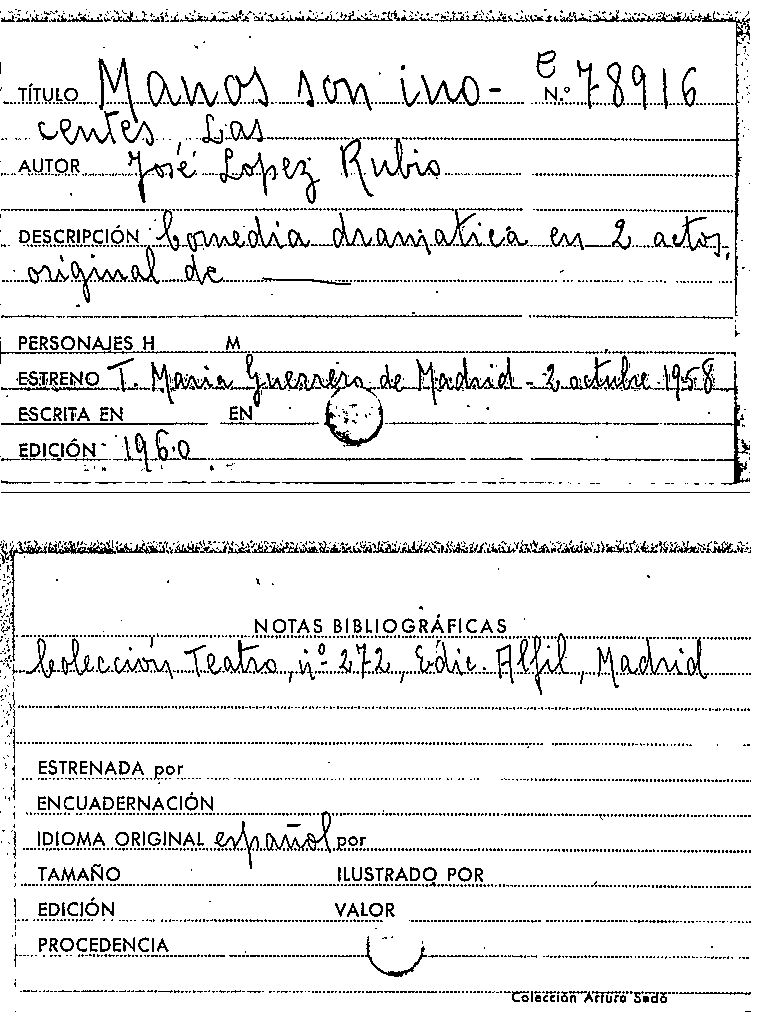 TÍTULO Manos son ino- e N.º 78916
centes, Las
AUTOR José Lopez Rubio
DESCRIPCIÓN Comedia dramatica en 2 actos,
original de ———
PERSONAJES H M
ESTRENO T. Maria Guerrero de Madrid - 2 octubre 1958
ESCRITA EN EN
EDICIÓN 1960
NOTAS BIBLIOGRÁFICAS
Colección Teatro, nº 272, Edic. Alfil, Madrid
ESTRENADA por
ENCUADERNACIÓN
IDIOMA ORIGINAL español por
TAMAÑO ILUSTRADO POR
EDICIÓN VALOR
PROCEDENCIA
Colección Arturo Sedó